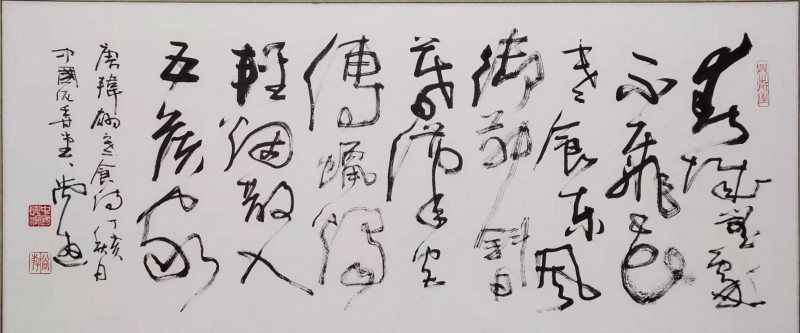 春城無處
不飛花
寒食东風
御柳斜日
暮漢宮
傳蠟燭
輕烟散入
五侯家
唐韓翃寒食诗丁亥秋日
中國